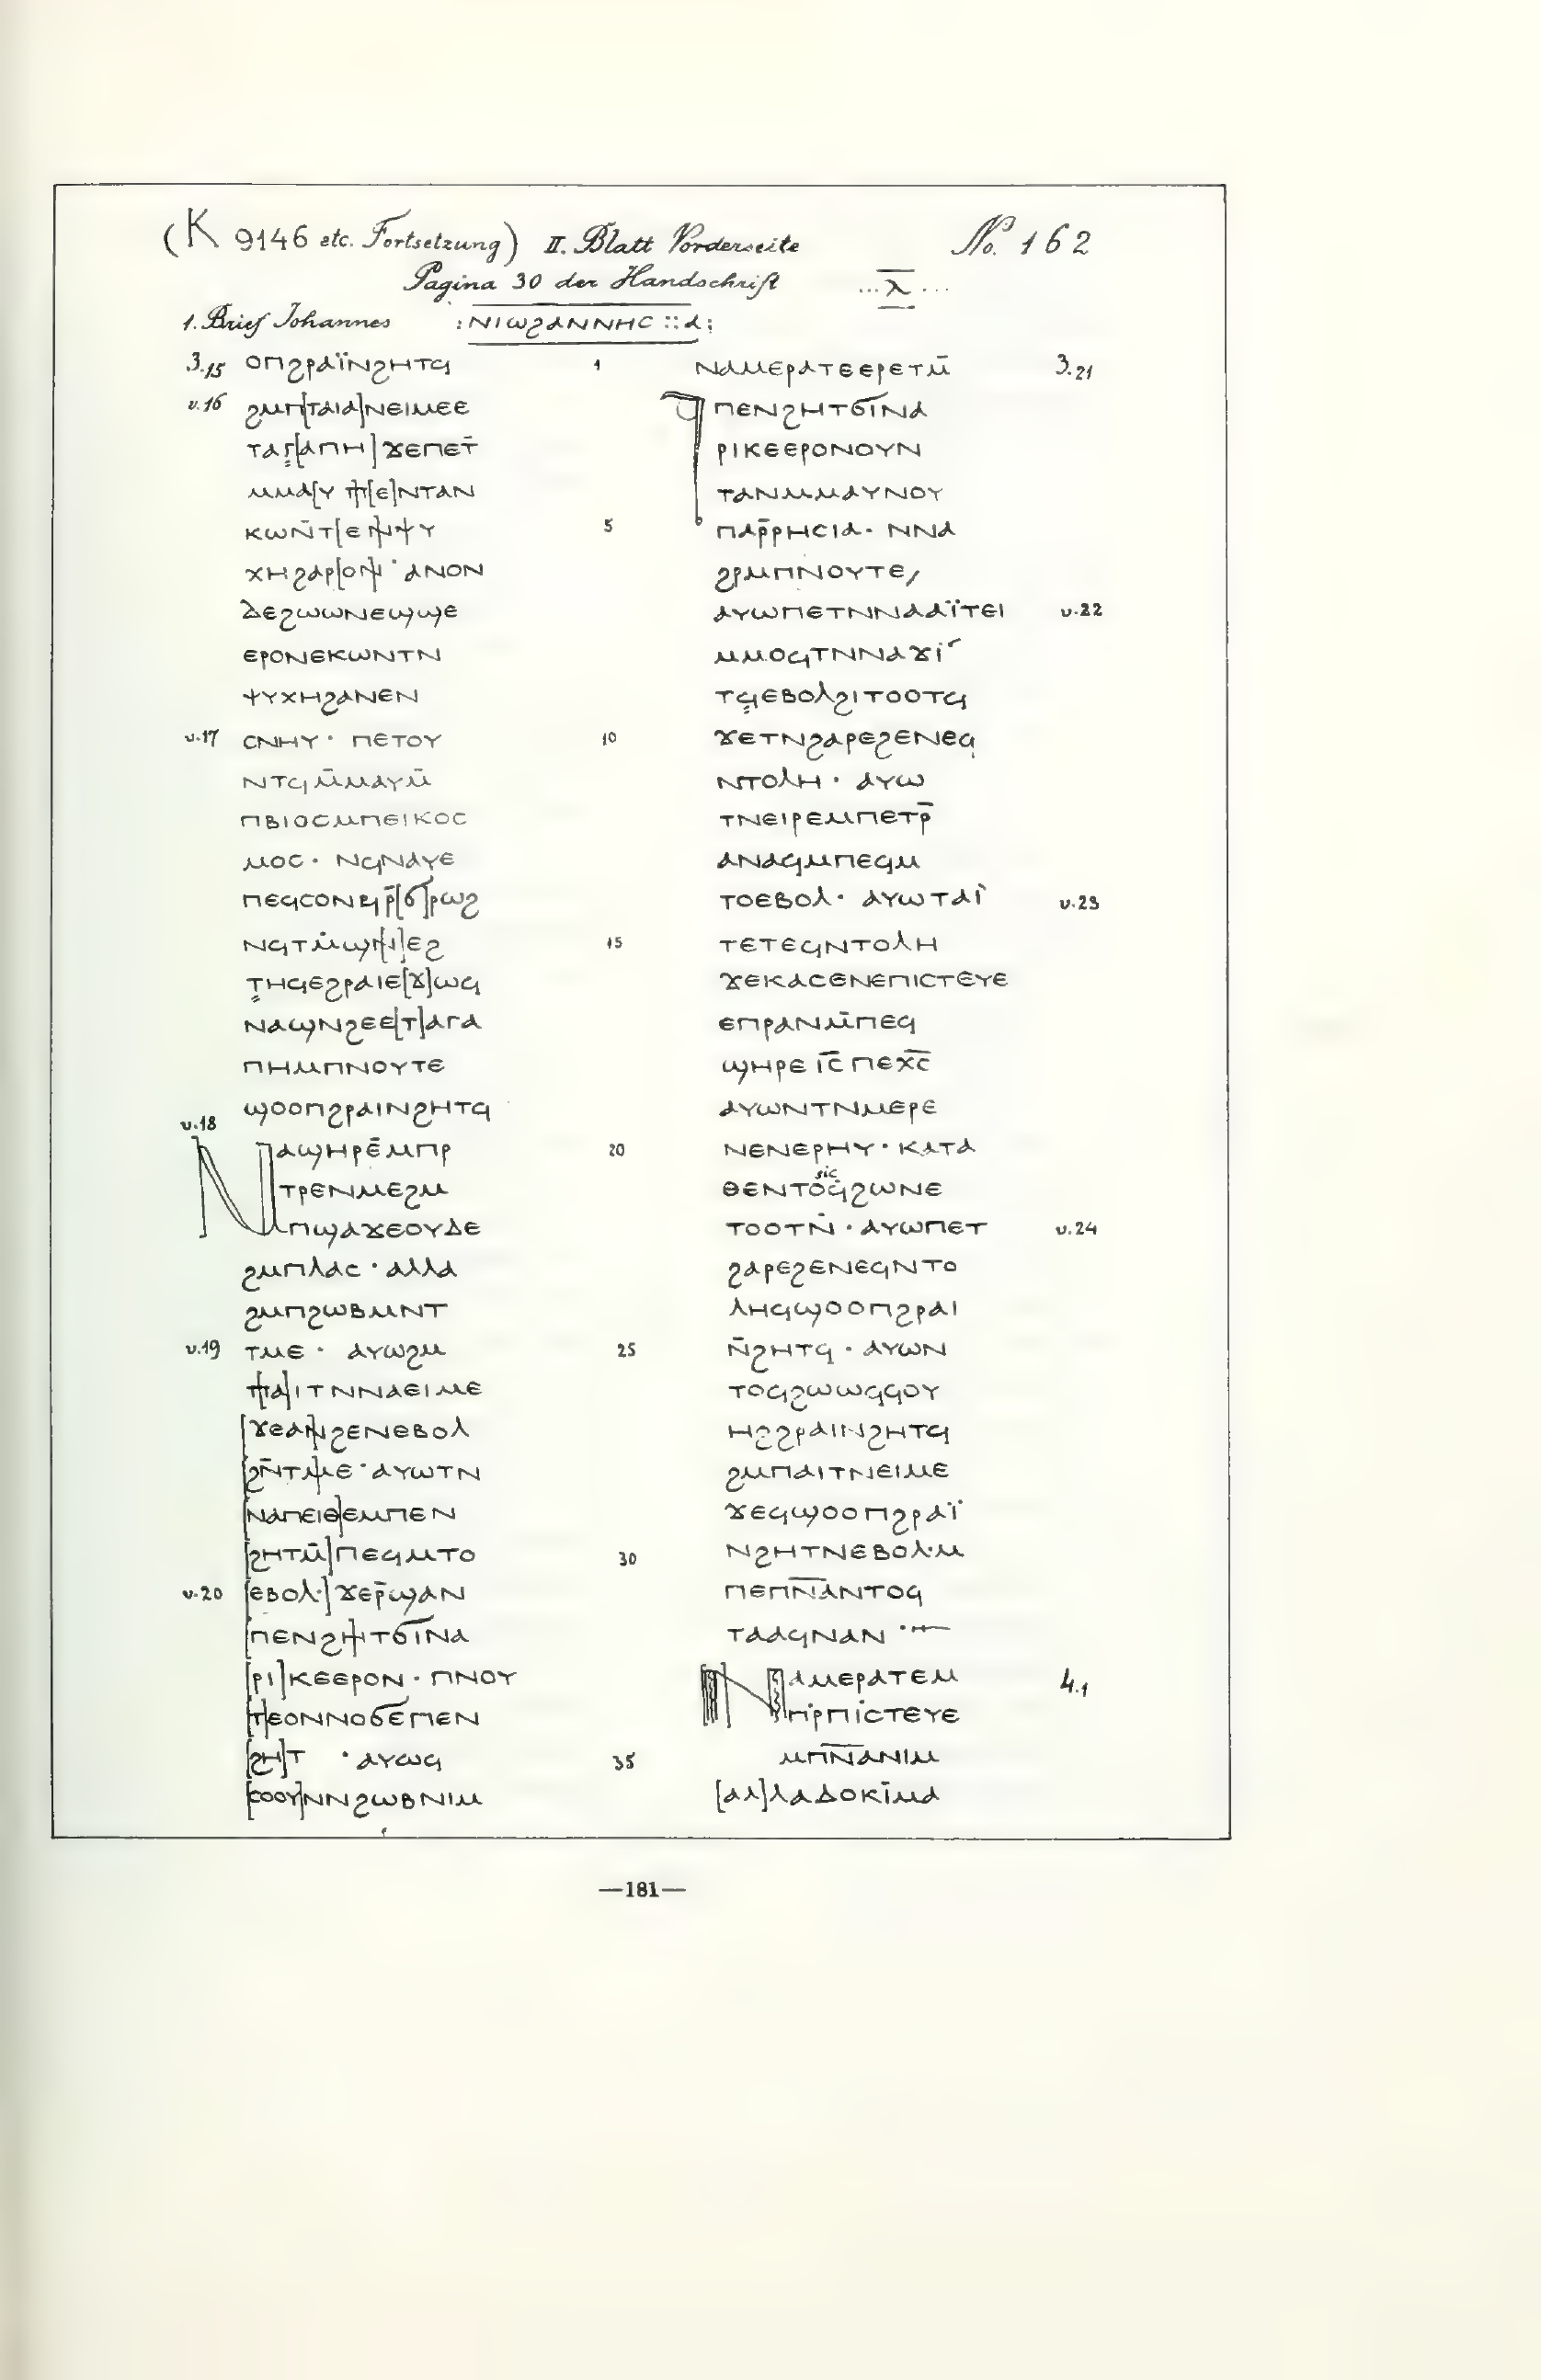 (K 9146 etc. Fortsetzung) II. Blatt Vorderseite No. 162
Pagina 30 der Handschrift ...ⲗ̅...
1. Brief Johannes :ⲛⲓⲱϩⲁⲛⲛⲏⲥ ::ⲁ:
3.15 ⲟⲡϩⲣⲁⲓ̈ⲛϩⲏⲧϥ
v.16 ϩⲙⲡ[ⲧⲁⲓⲁ]ⲛⲉⲓⲙⲉⲉ
ⲧⲁⲅ[ⲁⲡⲏ]ϫⲉⲡⲉⲧ̅
ⲙⲙⲁ[ⲩ ⲡ][ⲉ]ⲛⲧⲁⲛ
ⲕⲱⲛ̅ⲧ[ⲉϥ]ⲯⲩ
ⲭⲏϩⲁⲣ[ⲟⲛ]·ⲁⲛⲟⲛ
ⲇⲉϩⲱⲱⲛⲉϣϣⲉ
ⲉⲣⲟⲛⲉⲕⲱⲛⲧⲛ
ⲯⲩⲭⲏϩⲁⲛⲉⲛ
v.17 ⲥⲛⲏⲩ· ⲡⲉⲧⲟⲩ
ⲛⲧϥⲙ̅ⲙⲁⲩⲙ̅
ⲡⲃⲓⲟⲥⲙⲡⲉⲓⲕⲟⲥ
ⲙⲟⲥ· ⲛϥⲛⲁⲩⲉ
ⲡⲉϥⲥⲟⲛⲉϥⲣ̅[ϭ]ⲣⲱϩ
ⲛϥⲧⲙ̅ϣ[ⲛ]ⲉϩ
ⲧⲏϥⲉϩⲣⲁⲓⲉ[ϫ]ⲱϥ
ⲛⲁϣⲛϩⲉⲉ[ⲧ]ⲁⲅⲁ
ⲡⲏⲙⲡⲛⲟⲩⲧⲉ
ϣⲟⲟⲡϩⲣⲁⲓⲛϩⲏⲧϥ
v.18 ⲛⲁϣⲏⲣⲉ̅ⲙⲡⲣ
ⲧⲣⲉⲛⲙⲉϩⲙ
ⲡϣⲁϫⲉⲟⲩⲇⲉ
ϩⲙⲡⲗⲁⲥ·ⲁⲗⲗⲁ
ϩⲙⲡϩⲱⲃⲙⲛⲧ
v.19 ⲧⲙⲉ· ⲁⲩⲱϩⲙ
ⲡ[ⲁ]ⲓⲧⲛⲛⲁⲉⲓⲙⲉ
[ϫⲉⲁⲛ]ϩⲉⲛⲉⲃⲟⲗ
[ϩⲛ̅ⲧⲙ]ⲉ·ⲁⲩⲱⲧⲛ
[ⲛⲁⲡⲉⲓⲑ]ⲉⲙⲡⲉⲛ
[ϩⲏⲧⲙ̅]ⲡⲉϥⲙⲧⲟ
v.20 [ⲉⲃⲟⲗ·]ϫⲉⲣ̅ϣⲁⲛ
[ⲡⲉⲛϩⲏ]ⲧϭⲓⲛⲁ
[ⲣⲓ]ⲕⲉⲉⲣⲟⲛ·ⲡⲛⲟⲩ
[ⲧ]ⲉⲟⲛⲛⲟϭⲉⲡⲉⲛ
[ϩⲏ]ⲧ ·ⲁⲩⲱϥ
[ⲥⲟⲟⲩ]ⲛⲛϩⲱⲃⲛⲓⲙ
1 ⲛⲁⲙⲉⲣⲁⲧⲉⲉⲣⲉⲧⲙ̅ 3.21
ⲡⲉⲛϩⲏⲧϭⲓⲛⲁ
ⲣⲓⲕⲉⲉⲣⲟⲛⲟⲩⲛ
ⲧⲁⲛⲙⲙⲁⲩⲛⲟⲩ
5 ⲡⲁⲣ̅ⲣⲏⲥⲓⲁ· ⲛⲛⲁ
ϩⲣⲙⲡⲛⲟⲩⲧⲉ/
ⲁⲩⲱⲡⲉⲧⲛⲛⲁⲁⲁⲓ̈ⲧⲉⲓ v.22
ⲙⲙⲟϥⲧⲛⲛⲁϫⲓ
ⲧϥⲉⲃⲟⲗϩⲓⲧⲟⲟⲧϥ
10 ϫⲉⲧⲛϩⲁⲣⲉϩⲉⲛⲉϥ
ⲛⲧⲟⲗⲏ· ⲁⲩⲱ
ⲧⲛⲉⲓⲣⲉⲙⲡⲉⲧⲣ̅
ⲁⲛⲁϥⲙⲡⲉϥⲙ
ⲧⲟⲉⲃⲟⲗ· ⲁⲩⲱⲧⲁⲓ̈ v.23
15 ⲧⲉⲧⲉϥⲛⲧⲟⲗⲏ
ϫⲉⲕⲁⲥⲉⲛⲉⲡⲓⲥⲧⲉⲩⲉ
ⲉⲡⲣⲁⲛⲙ̅ⲡⲉϥ
ϣⲏⲣⲉ ⲓ̅ⲥ̅ ⲡⲉⲭ̅ⲥ̅
ⲁⲩⲱⲛⲧⲛⲙⲉⲣⲉ
20 ⲛⲉⲛⲉⲣⲏⲩ· ⲕⲁⲧⲁ
sic
ⲑⲉⲛⲧⲟϥϩⲱⲛⲉ
ⲧⲟⲟⲧⲛ̇·ⲁⲩⲱⲡⲉⲧ v.24
ϩⲁⲣⲉϩⲉⲛⲉϥⲛⲧⲟ
ⲗⲏϥϣⲟⲟⲡϩⲣⲁⲓ
25 ⲛ̅ϩⲏⲧϥ·ⲁⲩⲱⲛ
ⲧⲟϥϩⲱⲱϥϥⲟⲩ
ⲏϩϩⲣⲁⲓⲛϩⲏⲧϥ
ϩⲙⲡⲁⲓⲧⲛⲉⲓⲙⲉ
ϫⲉϥϣⲟⲟⲡϩⲣⲁⲓ̈
30 ⲛϩⲏⲧⲛⲉⲃⲟⲗ·ⲙ
ⲡⲉⲡⲛ̅ⲁ̅ⲛⲧⲟϥ
ⲧⲁⲁϥⲛⲁⲛ
ⲛⲁⲙⲉⲣⲁⲧⲉⲙ 4.1
ⲡⲣ̇ⲡⲓⲥⲧⲉⲩⲉ
35 ⲙⲡⲛ̅ⲁ̅ⲛⲓⲙ
[ⲁⲗ]ⲗⲁⲇⲟⲕⲓⲙⲁ
—181—